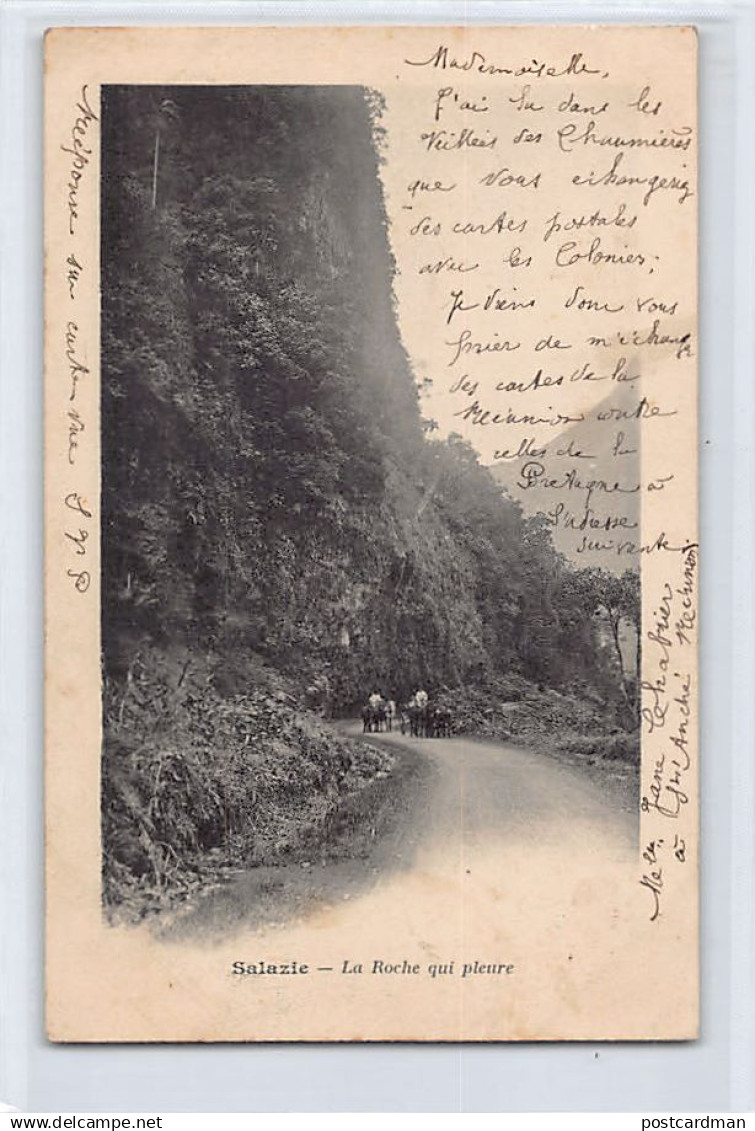 Mademoiselle,
J'ai lu dans les
Veillées des Chaumières
que vous échangerig
des cartes postales
avec les Colonies;
Je viens donc vous
prier de m'échanger
des cartes de la
Réunion contre
celles de la
Bretagne à
l'adresse
suivante
Melle Jane Chabrier
à Ste André Réunion
Réponse sur carte vue S V P
Salazie — La Roche qui pleure
postcardman